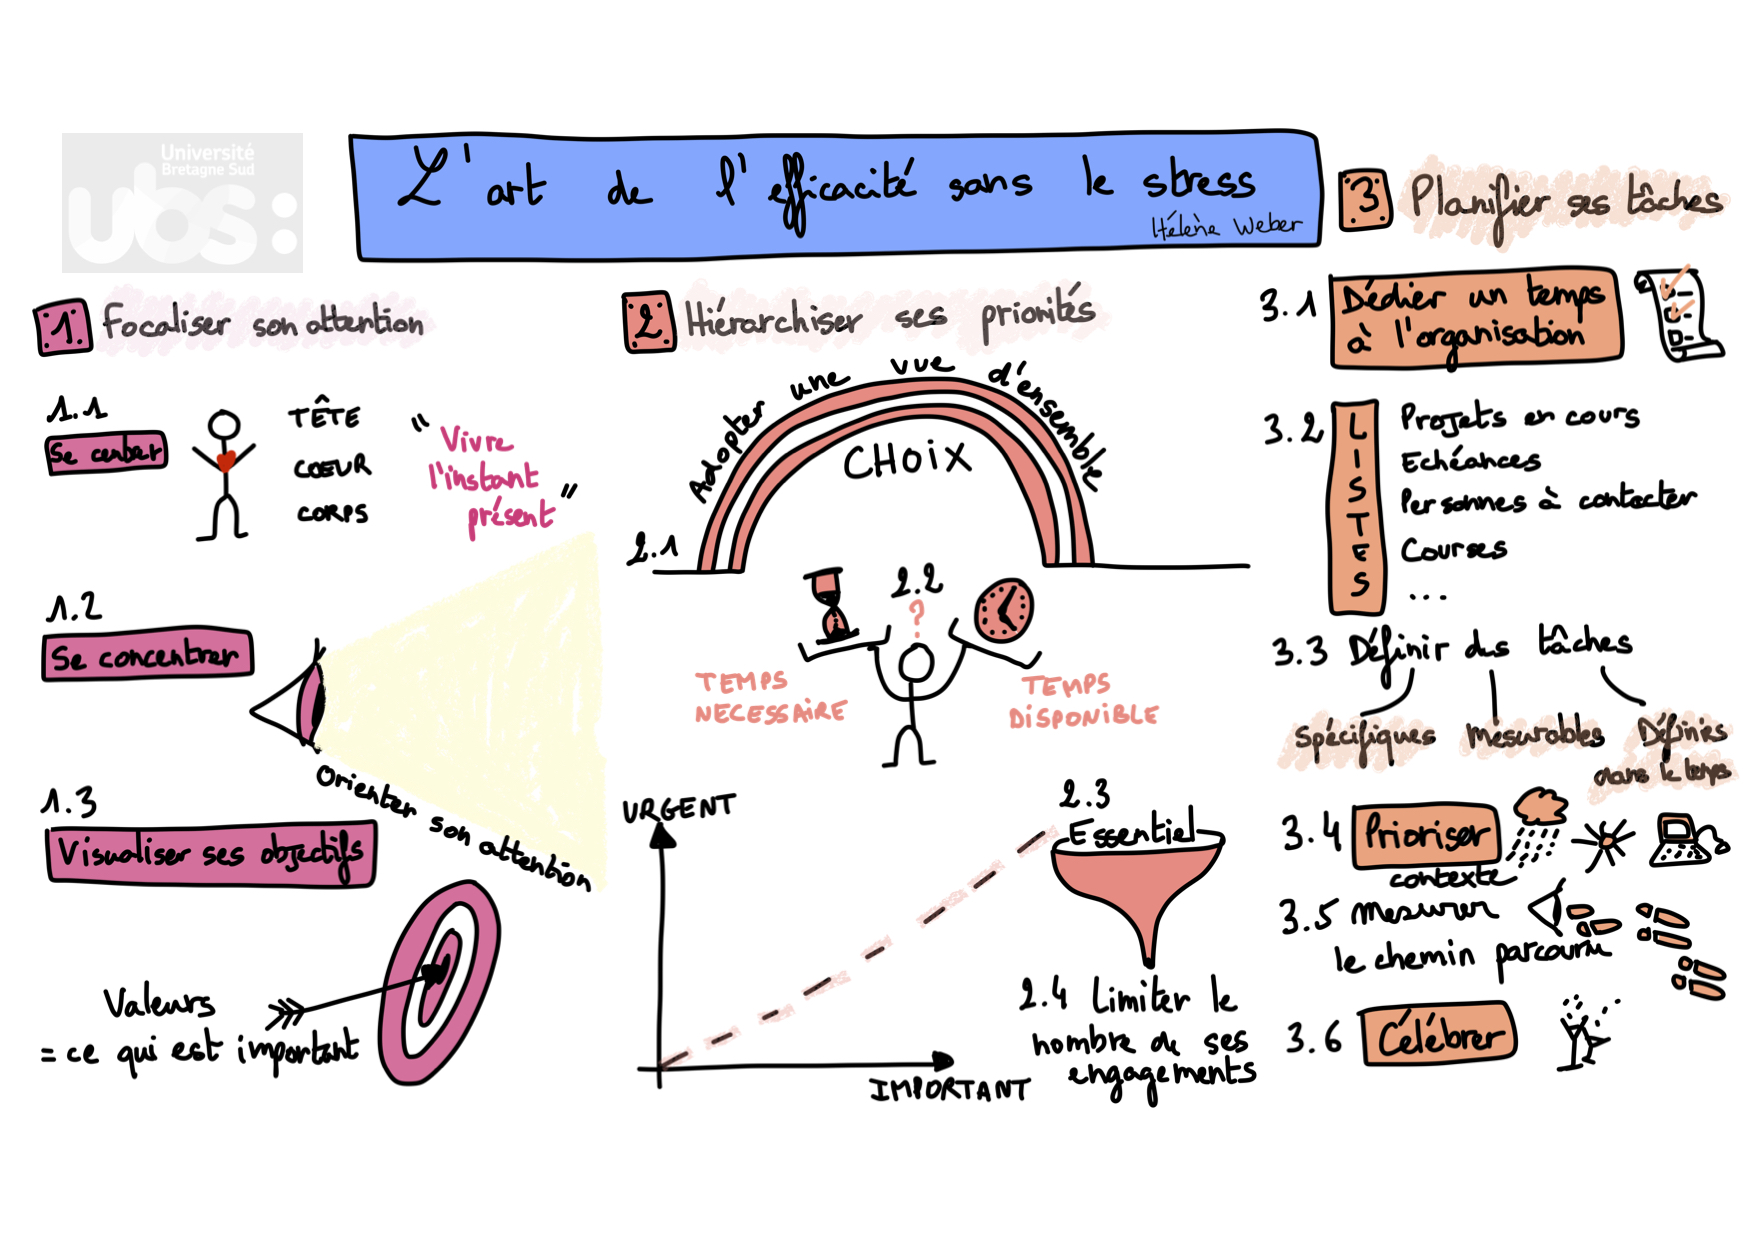 Université
Bretagne Sud
ubs:
L'art de l'efficacité sans le stress
Hélène Weber
1 Focaliser son attention
1.1
Se centrer
TÊTE
CŒUR
CORPS
"Vivre
l'instant
présent"
1.2
Se concentrer
Orienter son attention
1.3
Visualiser ses objectifs
Valeurs
= ce qui est important
2 Hiérarchiser ses priorités
Adopter une vue d'ensemble
CHOIX
2.1
2.2
?
TEMPS
NECESSAIRE
TEMPS
DISPONIBLE
URGENT
IMPORTANT
2.3
Essentiel
2.4 Limiter le
nombre de ses
engagements
3 Planifier ses tâches
3.1 Dédier un temps
à l'organisation
3.2 LISTES
Projets en cours
Echéances
Personnes à contacter
Courses
...
3.3 Définir des tâches
Spécifiques
Mesurables
Définies
dans le temps
3.4 Prioriser
contexte
3.5 Mesurer
le chemin parcouru
3.6 Célébrer